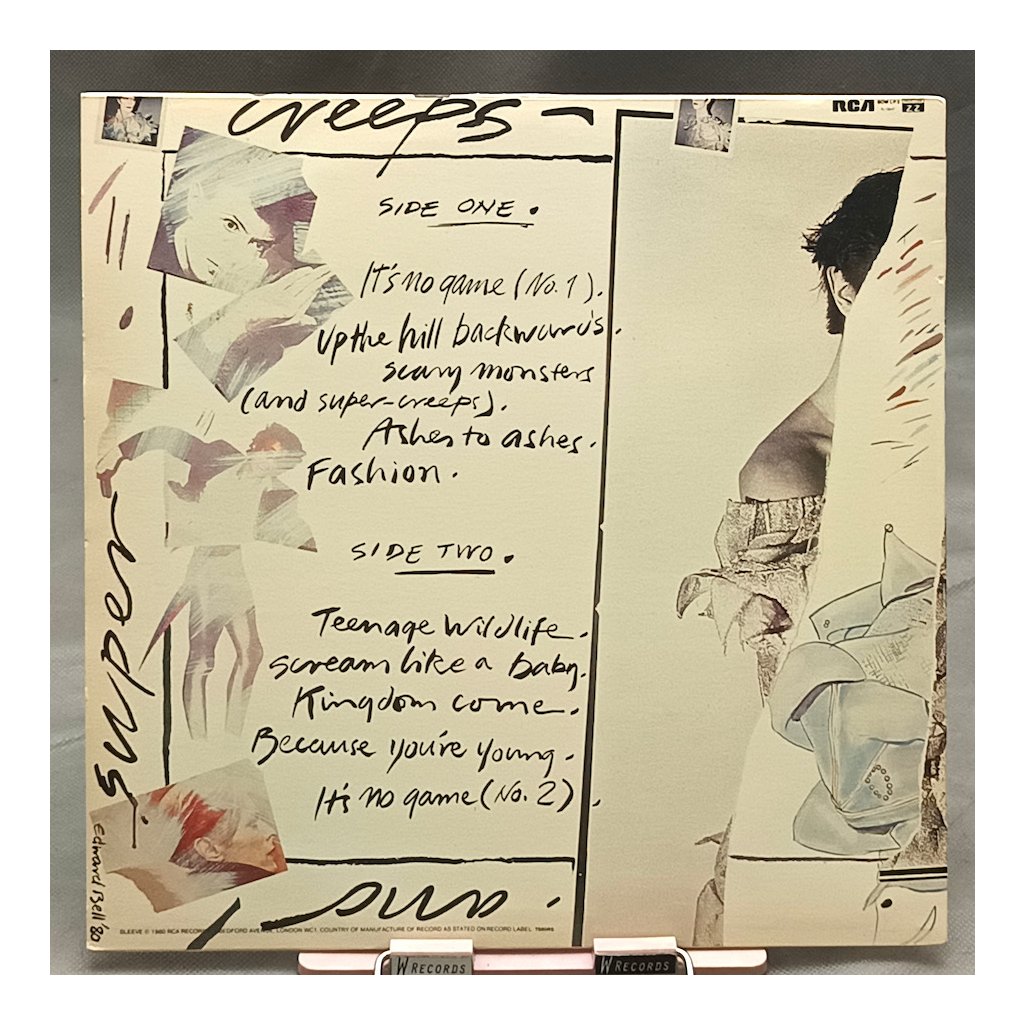 creeps
RCA BOW LP 2
22
SIDE ONE.
It's no game (No. 1).
Up the hill backwards.
scary monsters
(and super-creeps).
Ashes to ashes.
Fashion.
SIDE TWO.
Teenage wildlife.
scream like a baby.
Kingdom come.
Because you're young.
It's no game (No. 2).
super
Edward Bell '80
and
SLEEVE © 1980 RCA RECORDS BEDFORD AVENUE, LONDON WC1. COUNTRY OF MANUFACTURE OF RECORD AS STATED ON RECORD LABEL
W RECORDS
W RECORDS